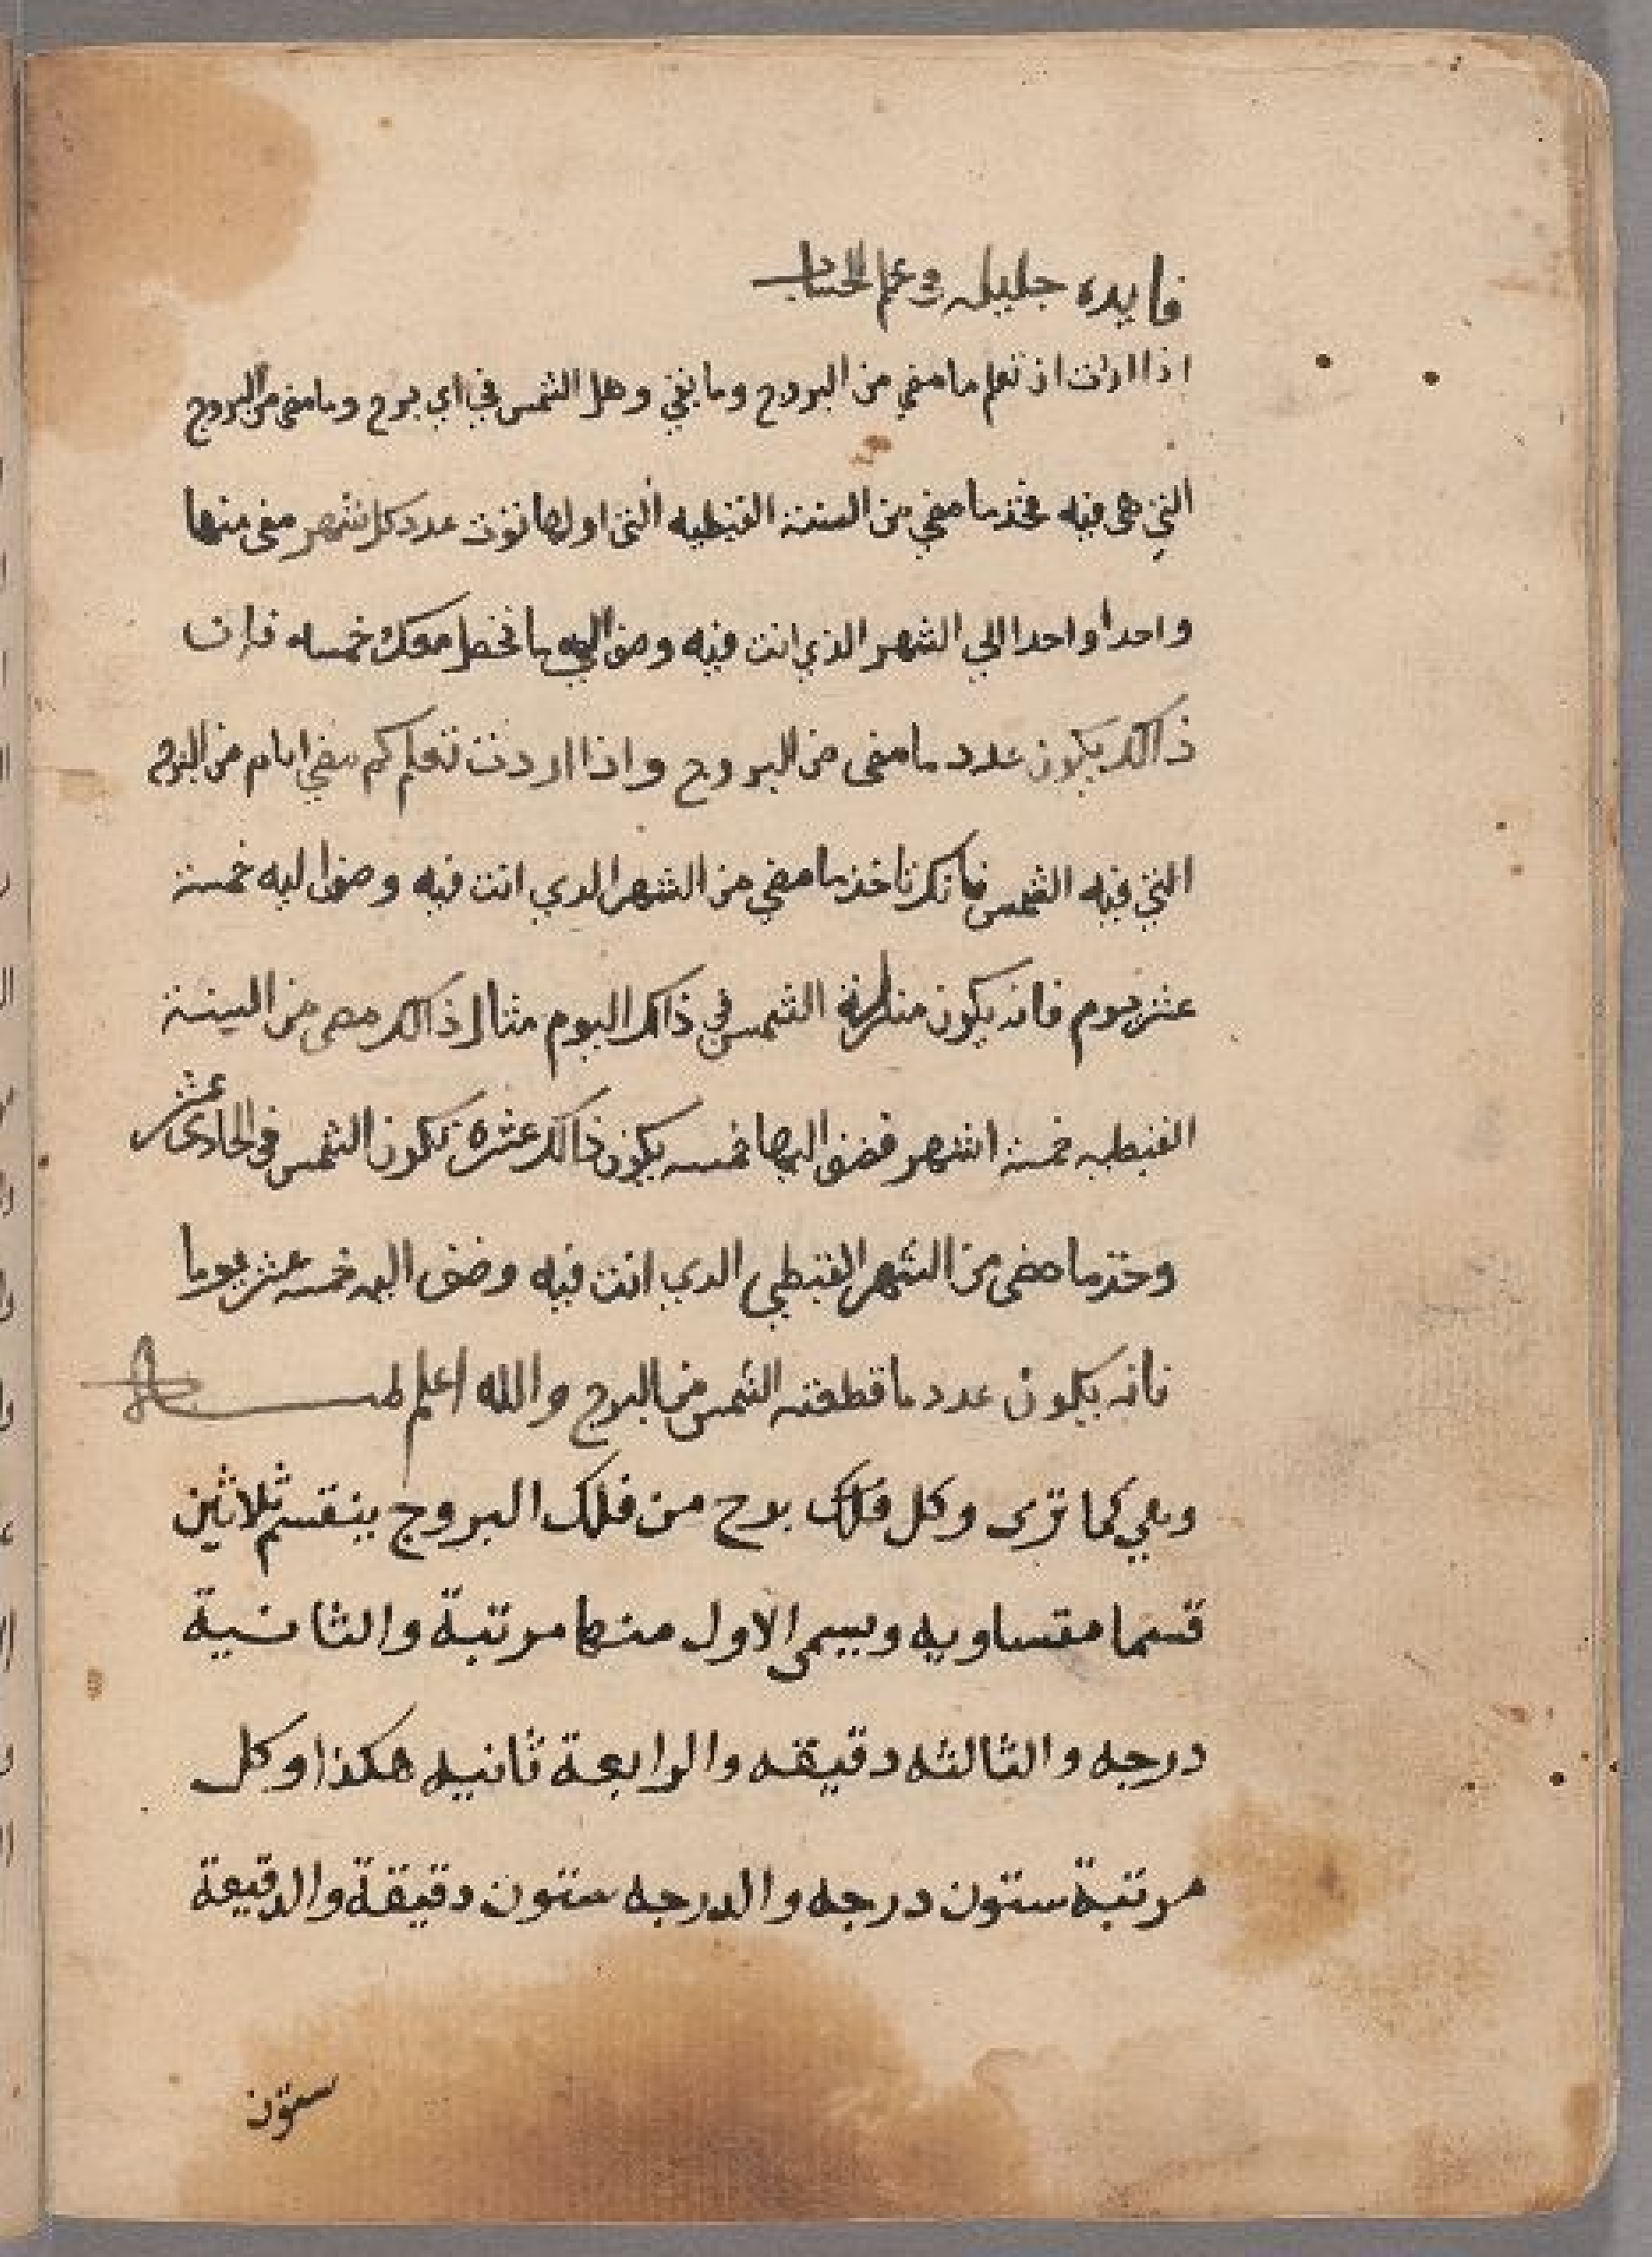 فايده جليله في علم الحساب
اذا اردت ان تعلم ما مضي من البروج وما بقي وهل الشمس في اي برج وما مضى من البروج
التي هي فيه فخذ ما مضي من السنة القبطيه التى اولها توت عدد كل شهر مضى منها
واحدا واحدا الي الشهر الذي انت فيه وضف اليه ما تحصل معك خمسه فان
ذالك يكون عدد ما مضى من البروج واذا اردت تعلم كم مضي ايام من البرج
التي فيه الشمس فانك تاخذ ما مضي من الشهر الدي انت فيه وضف اليه خمسة
عشر يوم فانه يكون منزلة الشمس في ذالك اليوم مثال ذالك مضى من السنة
القبطيه خمسة اشهر فضف اليها خمسه يكون ذالك عشره تكون الشمس في الحادى عشر
وخذ ما مضى من الشهر القبطي الدي انت فيه وضف اليه خمسه عشر يوما
فانه يكون عدد ما قطعته الشمس من البرج والله اعلم
وهي كما ترى وكل فلك برج من فلك البروج ينقسم ثلاثين
قسما متساويه ويسمى الاول منها مرتبة والثانية
درجه والثالثه دقيقه والرابعة ثانيه هكذا وكل
مرتبة ستون درجه والدرجه ستون دقيقة والدقيقة
ستون